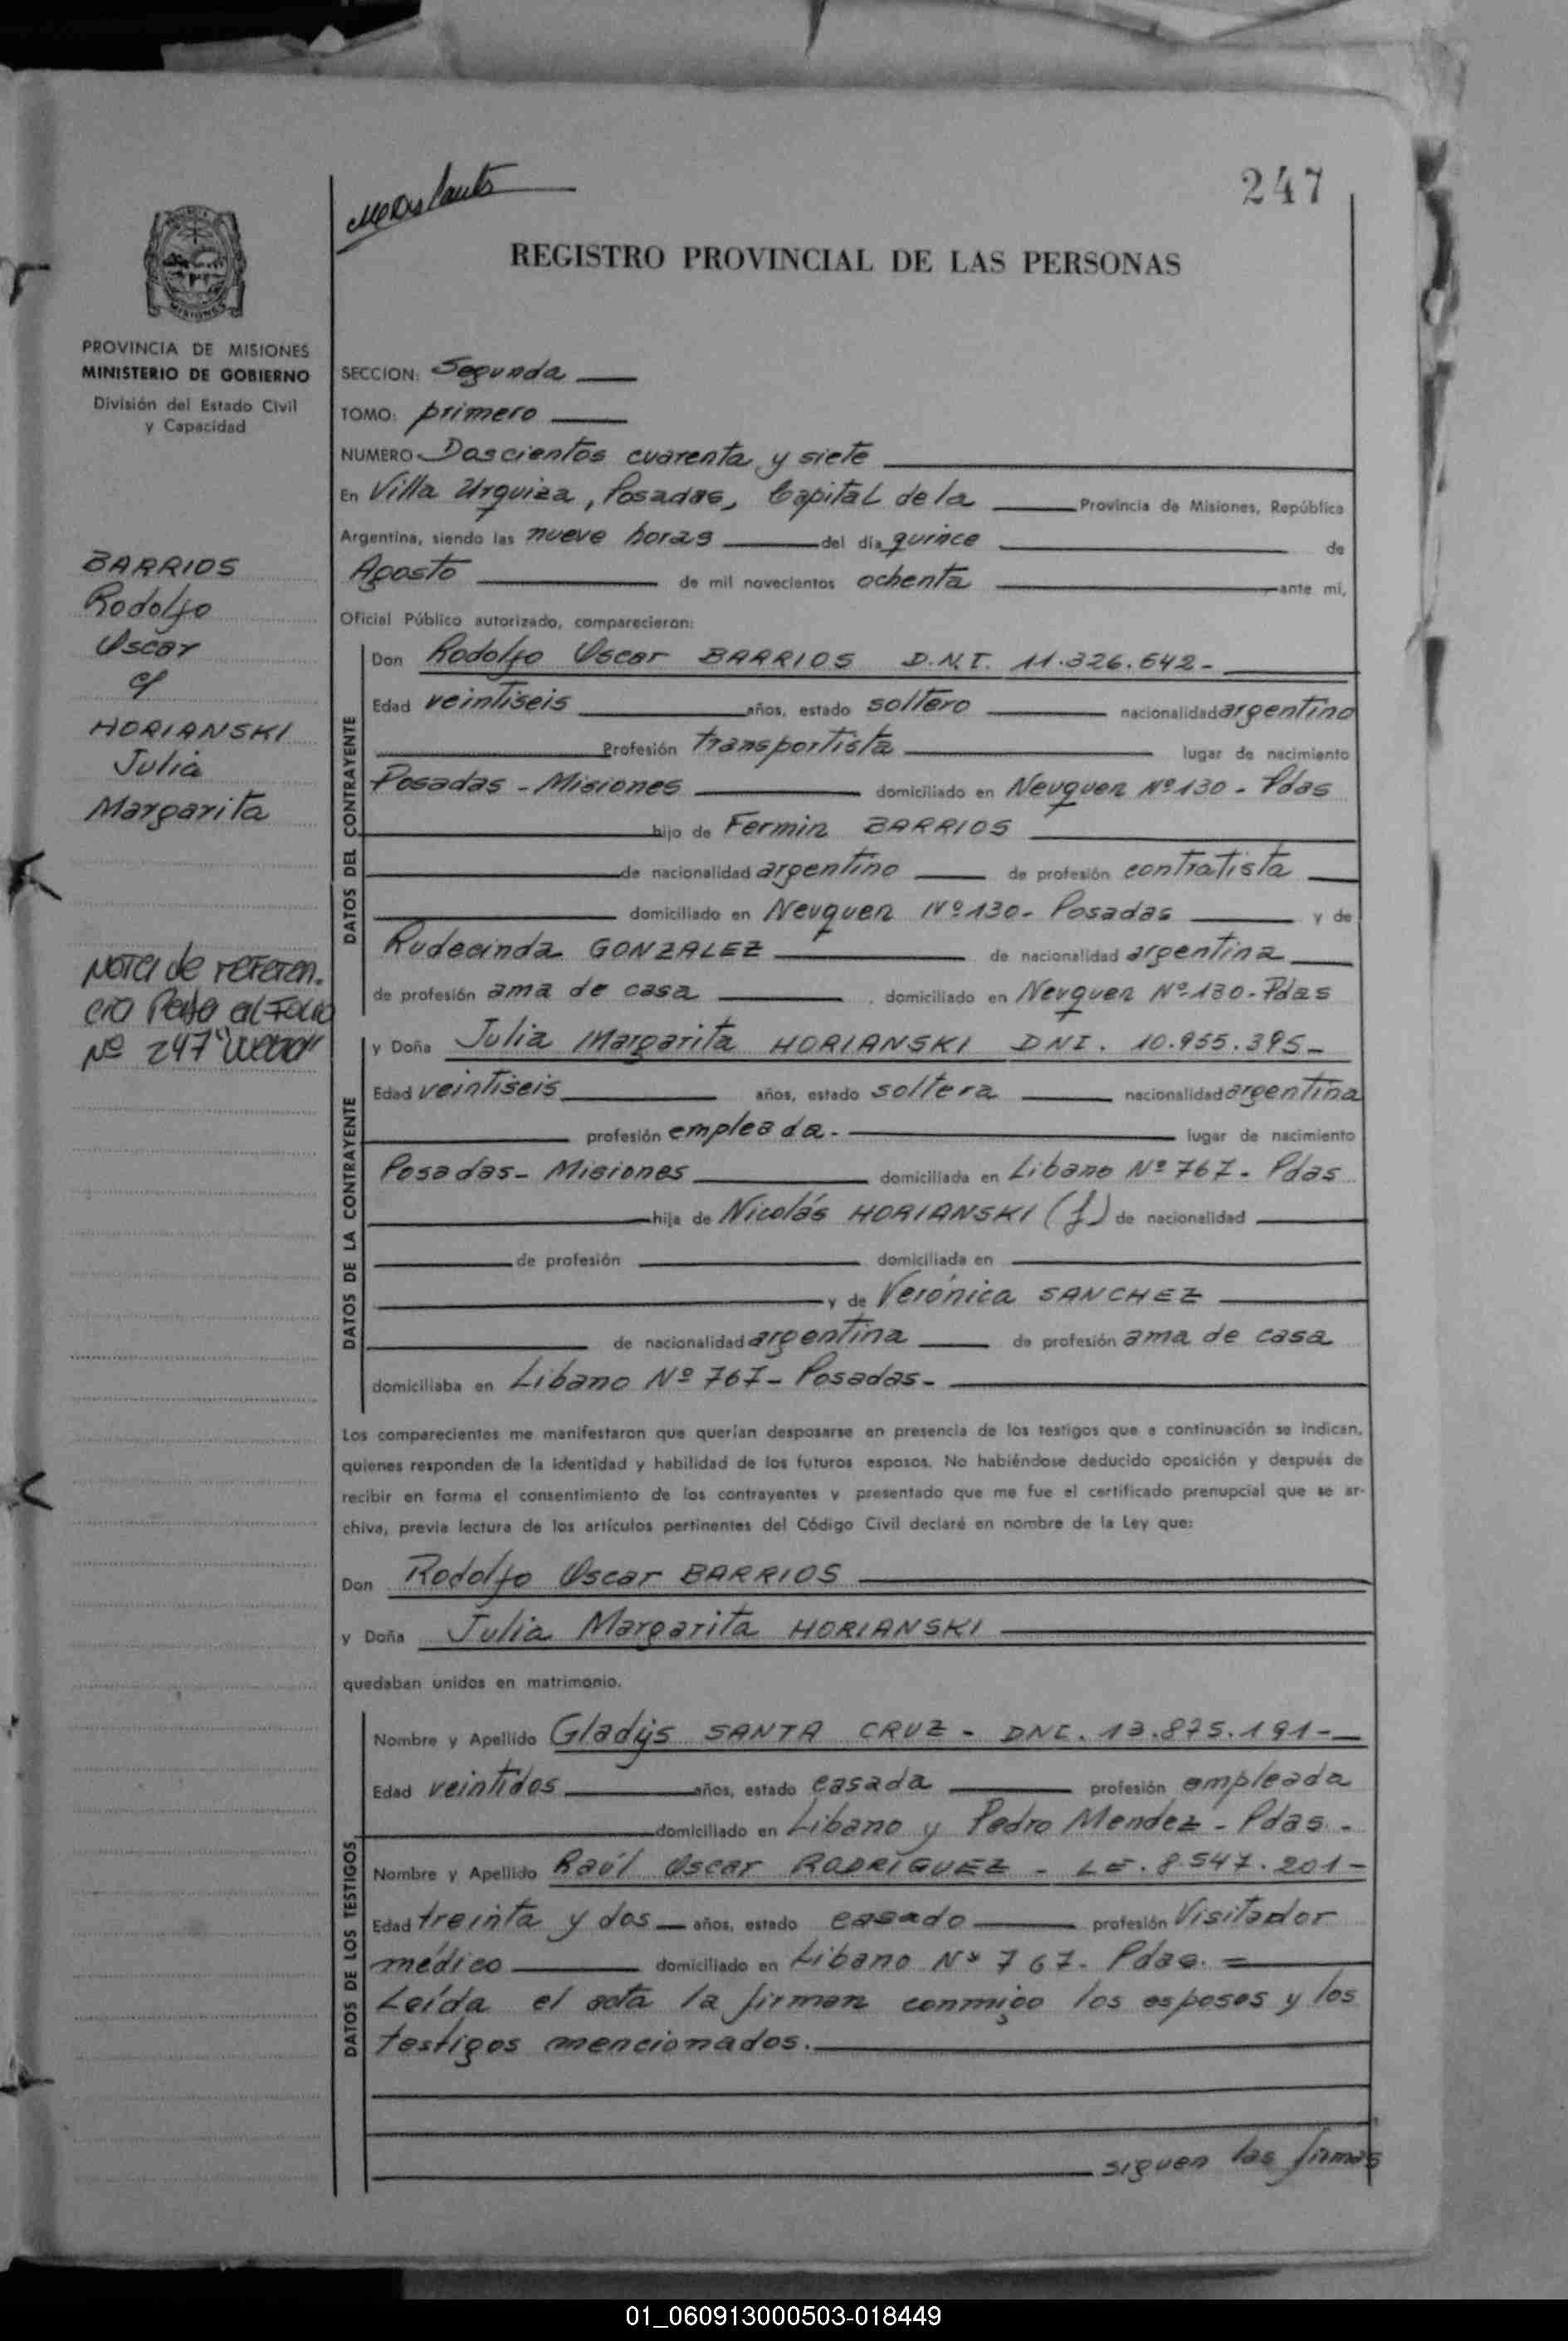 247
REGISTRO PROVINCIAL DE LAS PERSONAS
MISIONES
PROVINCIA DE MISIONES
MINISTERIO DE GOBIERNO
División del Estado Civil
y Capacidad
BARRIOS
Rodolfo
Oscar
c/
HORIANSKI
Julia
Margarita
Nota de referen.
cia Pasa al Folio
Nº 247
SECCION: Segunda
TOMO: primero
NUMERO Doscientos cuarenta y siete
En Villa Urquiza, Posadas, Capital de la Provincia de Misiones, República
Argentina, siendo las nueve horas del día quince de
Agosto de mil novecientos ochenta ante mi,
Oficial Público autorizado, comparecieron:
DATOS DEL CONTRAYENTE
Don Rodolfo Oscar BARRIOS D.N.I. 11.326.642-
Edad veintiseis años, estado soltero nacionalidad argentino
Profesión transportista lugar de nacimiento
Posadas - Misiones domiciliado en Neuquen Nº 130 - Pdas
hijo de Fermin BARRIOS
de nacionalidad argentino de profesión contratista
domiciliado en Neuquen Nº 130- Posadas y de
Rudecinda GONZALEZ de nacionalidad argentina
de profesión ama de casa , domiciliado en Neuquen Nº 130-Pdas
DATOS DE LA CONTRAYENTE
y Doña Julia Margarita HORIANSKI DNI. 10.955.395-
Edad veintiseis años, estado soltera nacionalidad argentina
profesión empleada.- lugar de nacimiento
Posadas- Misiones domiciliada en Libano Nº 767- Pdas
hija de Nicolás HORIANSKI (f) de nacionalidad
de profesión domiciliada en
y de Verónica SANCHEZ
de nacionalidad argentina de profesión ama de casa
domiciliaba en Libano Nº 767- Posadas-
Los comparecientes me manifestaron que querían desposarse en presencia de los testigos que a continuación se indican,
quienes responden de la identidad y habilidad de los futuros esposos. No habiéndose deducido oposición y después de
recibir en forma el consentimiento de los contrayentes y presentado que me fue el certificado prenupcial que se ar-
chiva, previa lectura de los artículos pertinentes del Código Civil declaré en nombre de la Ley que:
Don Rodolfo Oscar BARRIOS
y Doña Julia Margarita HORIANSKI
quedaban unidos en matrimonio.
DATOS DE LOS TESTIGOS
Nombre y Apellido Gladys SANTA CRUZ - DNI. 13.875.191-
Edad veintidos años, estado casada profesión empleada
domiciliado en Libano y Pedro Mendez - Pdas.-
Nombre y Apellido Raúl Oscar RODRIGUEZ - LE. 8.547.201-
Edad treinta y dos años, estado casado profesión Visitador
médico domiciliado en Libano Nº 767- Pdas.
Leída el acta la firman conmigo los esposos y los
testigos mencionados.
siguen las firmas
01_060913000503-018449